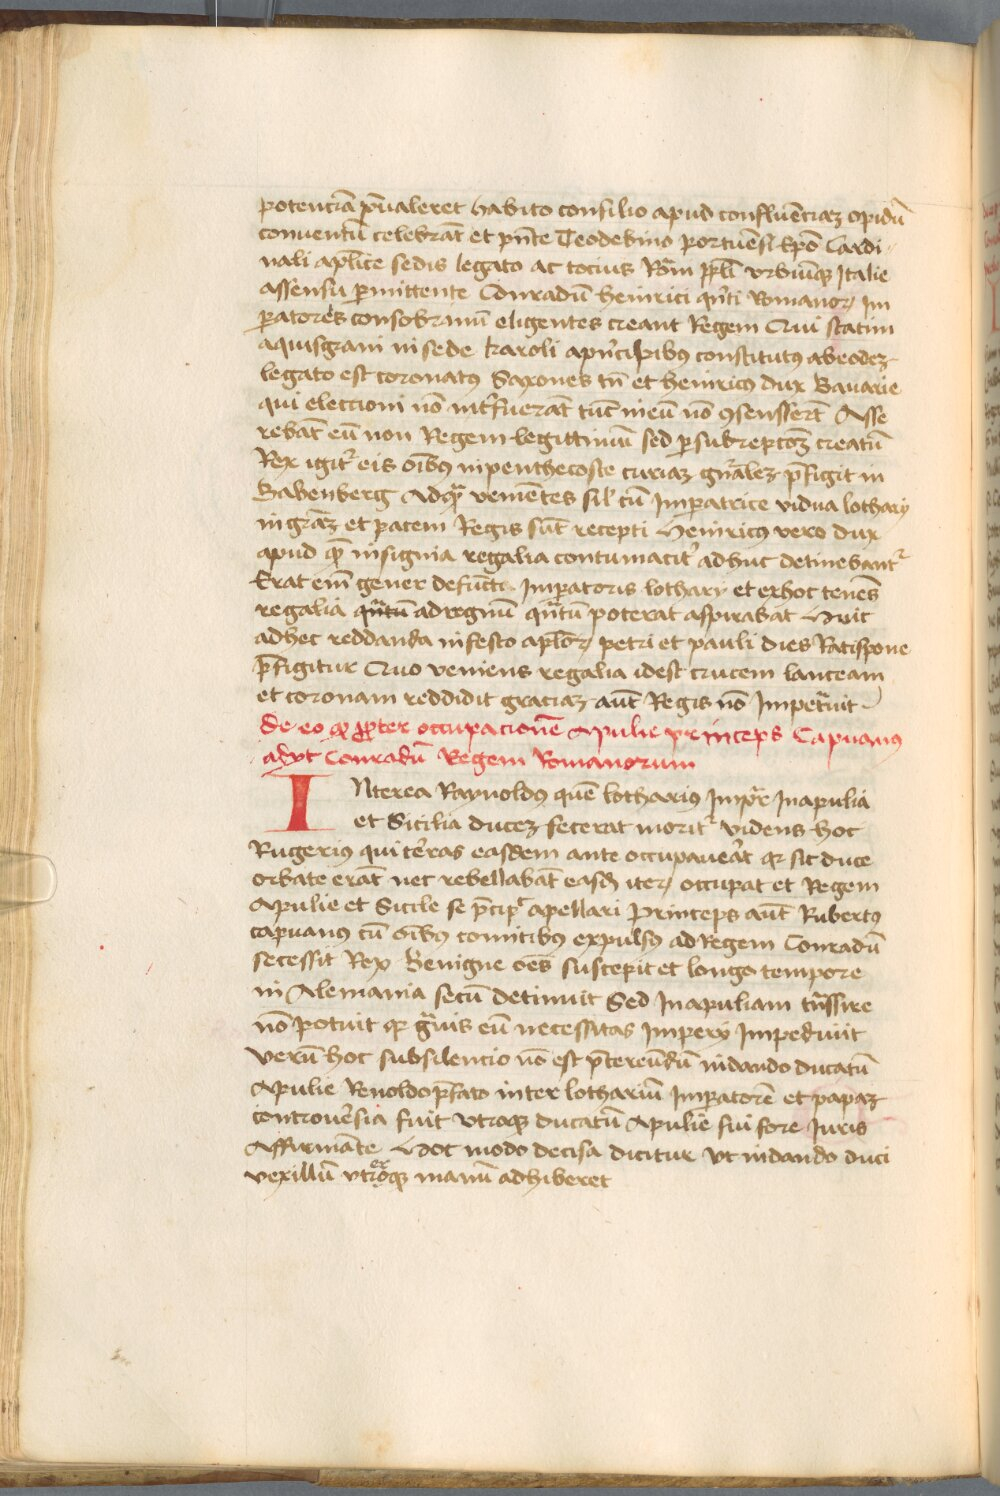 potenciā p̄ualeret habito consilio apud confluēciaʒ opidū
conuentū celebrāt et pn̄te Teodewino portuēsi Epō Cardi
nali aplīce sedis legato ac tocius Rōm ppl̄i vrbiūqʒ Italie
assensu permittente Conradū heinrici qn̄ti Romanoꝝ Im
peratores consobrinū eligentes creant Regem Qui statim
aquisgrani in sede karoli a pn̄cipibꝰ constitutꝰ ab eodeʒ
legato est coronatꝰ Saxones tn̄ et heinricꝰ dux Bauarie
qui eleccioni nō int̄fuerāt tūc in eū nō ꝯsensserт̄ Asse
rebāt eū non Regem legittimū sed per subrepcōʒ creatū
Rex igit᷑ eis oībꝰ in penthecoste curiaʒ gn̄aleʒ p̄figit in
Babenberg Ad qm̄ venientes sil̄ cū Imperatrice vidua lothary
in grāʒ et pacem Regis sūt recepti Heinricꝰ vero dux
apud quē insignia regalia contumacit᷑ adhuc detinebant᷑
Erat em̄ gener defūcti Imperatoris lothary et ex hoc tenēs
regalia qn̄tū ad regnū qn̄tū poterat aspirabat Huic
ad hec reddanda in festo apl̄oꝝ petri et pauli dies Ratispone
p̄figitur Quo veniens regalia id est crucem lanceam
et coronam reddidit graciaʒ aūt Regis nō Impet̄uit
de eo qꝙ ꝓpter occupacionē Apulie princeps Capuanus
adyt Conradū Regem Romanorum
INterea Raynoldꝰ quē lotharius Impr̄ Inapulia
et Sicilia duceʒ fecerat morit᷑ videns hoc
Rugeriꝰ qui t̄ras easdem ante occupauerāt qꝛ sic duce
orbate erāt nec rebellabāt easd̄ iteꝝ occupat et Regem
Apulie et Sicile se p̄cip̄ apellari Princeps aūt Rubertꝰ
capuanꝰ cū oībꝰ comitibꝰ expulsꝰ ad Regem Conradū
secessit Rex Benigne oēs suscepit et longo tempore
in Alemania secū detinuit Sed Inapuliam tn̄ssire
nō potuit qꝛ ḡuis eū necessitas Impery Impediuit
Verū hoc sub silencio nō est p̄tereūdū in dando ducatū
Apulie Renoldo p̄fato inter lothariū Imperatorē et papaʒ
controu̅ersia fuit vtraqʒ ducatū Apulie sui fore Iuris
Affirmāte Hoc modo decisa dicitur vt in dando duci
vexillū vtroqʒ ex manū adhiberet